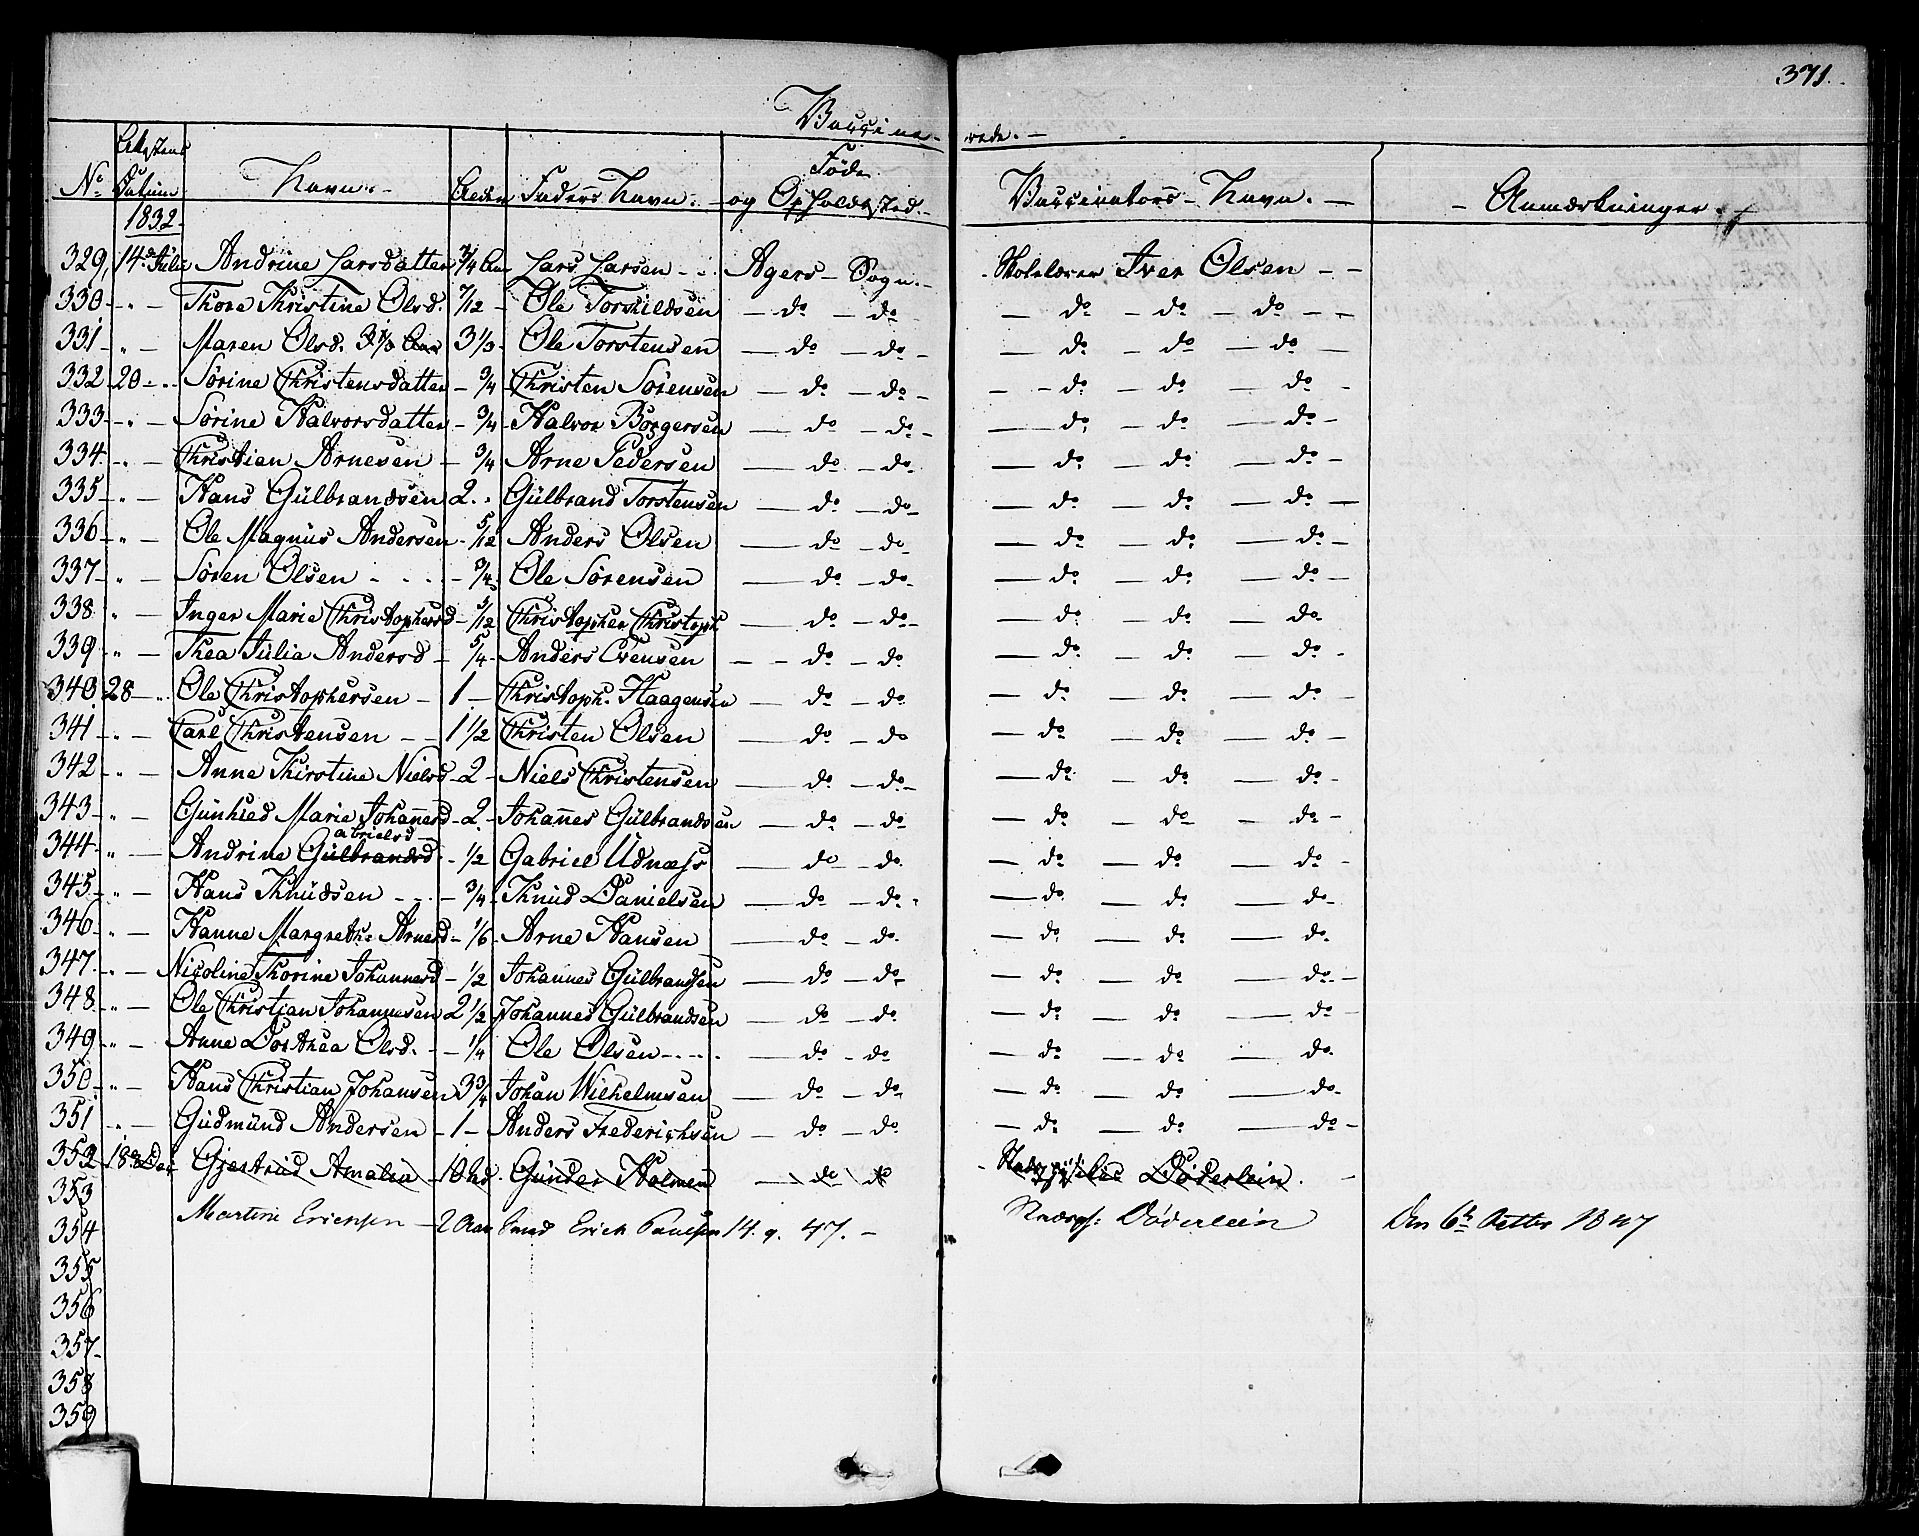 371.
Vaccine- rede. -
No Attestens Datum Navn. Alder Faders Navn. Føde og Opholdssted. Vaccinateurs Navn. - Anmærkninger.
1832.
329, 14de Juli Andrine Larsdatter 3/4 Aar Lars Larsen - - Agers - Sogn. - Skolelærer Iver Olsen - -
330 - " - Thora Kristine Olsd. 7/12 - Ole Torkildsen - do - do - - do - do - do - -
331 - " - Maren Olsd. 3 1/3 Aar 3 1/3. Ole Torstensen - do - do - - do - do - do -
332 - 20 - " Sørine Christensdatter - 3/4 Christen Sørensen - do - do - - do - do - do -
333 - " - Sørine Halvorsdatter - 3/4 Halvor Borgersen - do - do - - do - do - do -
334 - " - Christian Arnesen - 3/4 Arne Pedersen - do - do - do - do - do -
335 - " - Hans Gülbrandsen 2. - Gülbrand Torstensen - do - do - - do - do - do -
336 - " - Ole Magnüs Andersen - 5/12 Anders Olsen - do - do - - do - do - do -
337 - " - Søren Olsen - - - 3/4 - Ole Sørensen - do - do - - do - do - do -
338 " - Inger Marie Christophersd - 5/12 Christopher Christoph - do - do - - do - do - do -
339 - " - Thea Julia Andersd - 5/4 - Anders Evensen - - do - do - do - do - do -
340 28 - " Ole Christophersen - 1 - Christoph. Haagensen - do - do - do - do - do -
341 - " - Carl Christensen - - 1 1/2 Christen Olsen - do - do - do - do - do -
342 - " - Anne Kirstine Nielsd - 2 - Niels Christensen - do - do - - do - do - do -
343 - " - Gunhild Marie Johannesd - 2. - Johannes Gülbrandsen - do - do - do - do - do -
abrielsd
344 - " - Andrine Gülbrandsd. - 1/2 Gabriel Udnæss - do - do - do - do - do -
345 - " - Hans Knüdsen - - - 3/4 - Knüd Danielsen - do - do - - do - do - do -
346 - " - Hanne Margreth: Arnesd - 1/6 - Arne Hansen - do - do - do - do - do -
347. - " - Nicoline Thorine Johannesd - 1/2 Johannes Gülbrandsen - do - do - do - do - do -
348 - " - Ole Christian Johannesen 2 1/2 Johannes Gülbrandsen - do - do - do - do - do -
349 - " - Anne Dorthea Olsd. - - 1/4 Ole Olsen - - - - do - do - do - do - do -
350 - " - Hans Christian Johansen 3 3/4 Johan Wilhelmsen - do - do - do - do - do -
351 - " - Gudmünd Andersen - 1 - Anders Frederichsen - do - do - do - do - do -
352 - 18de Gjertrud Amalia - 10 Gunder Holmen - do - do - Døderlein. -
353
354 Martin Ericksen - 2 Aar Erick Paulsen 14. 9. 47. - Døderlein Den 6te Octbr 1847
355
356
357 -
358
359